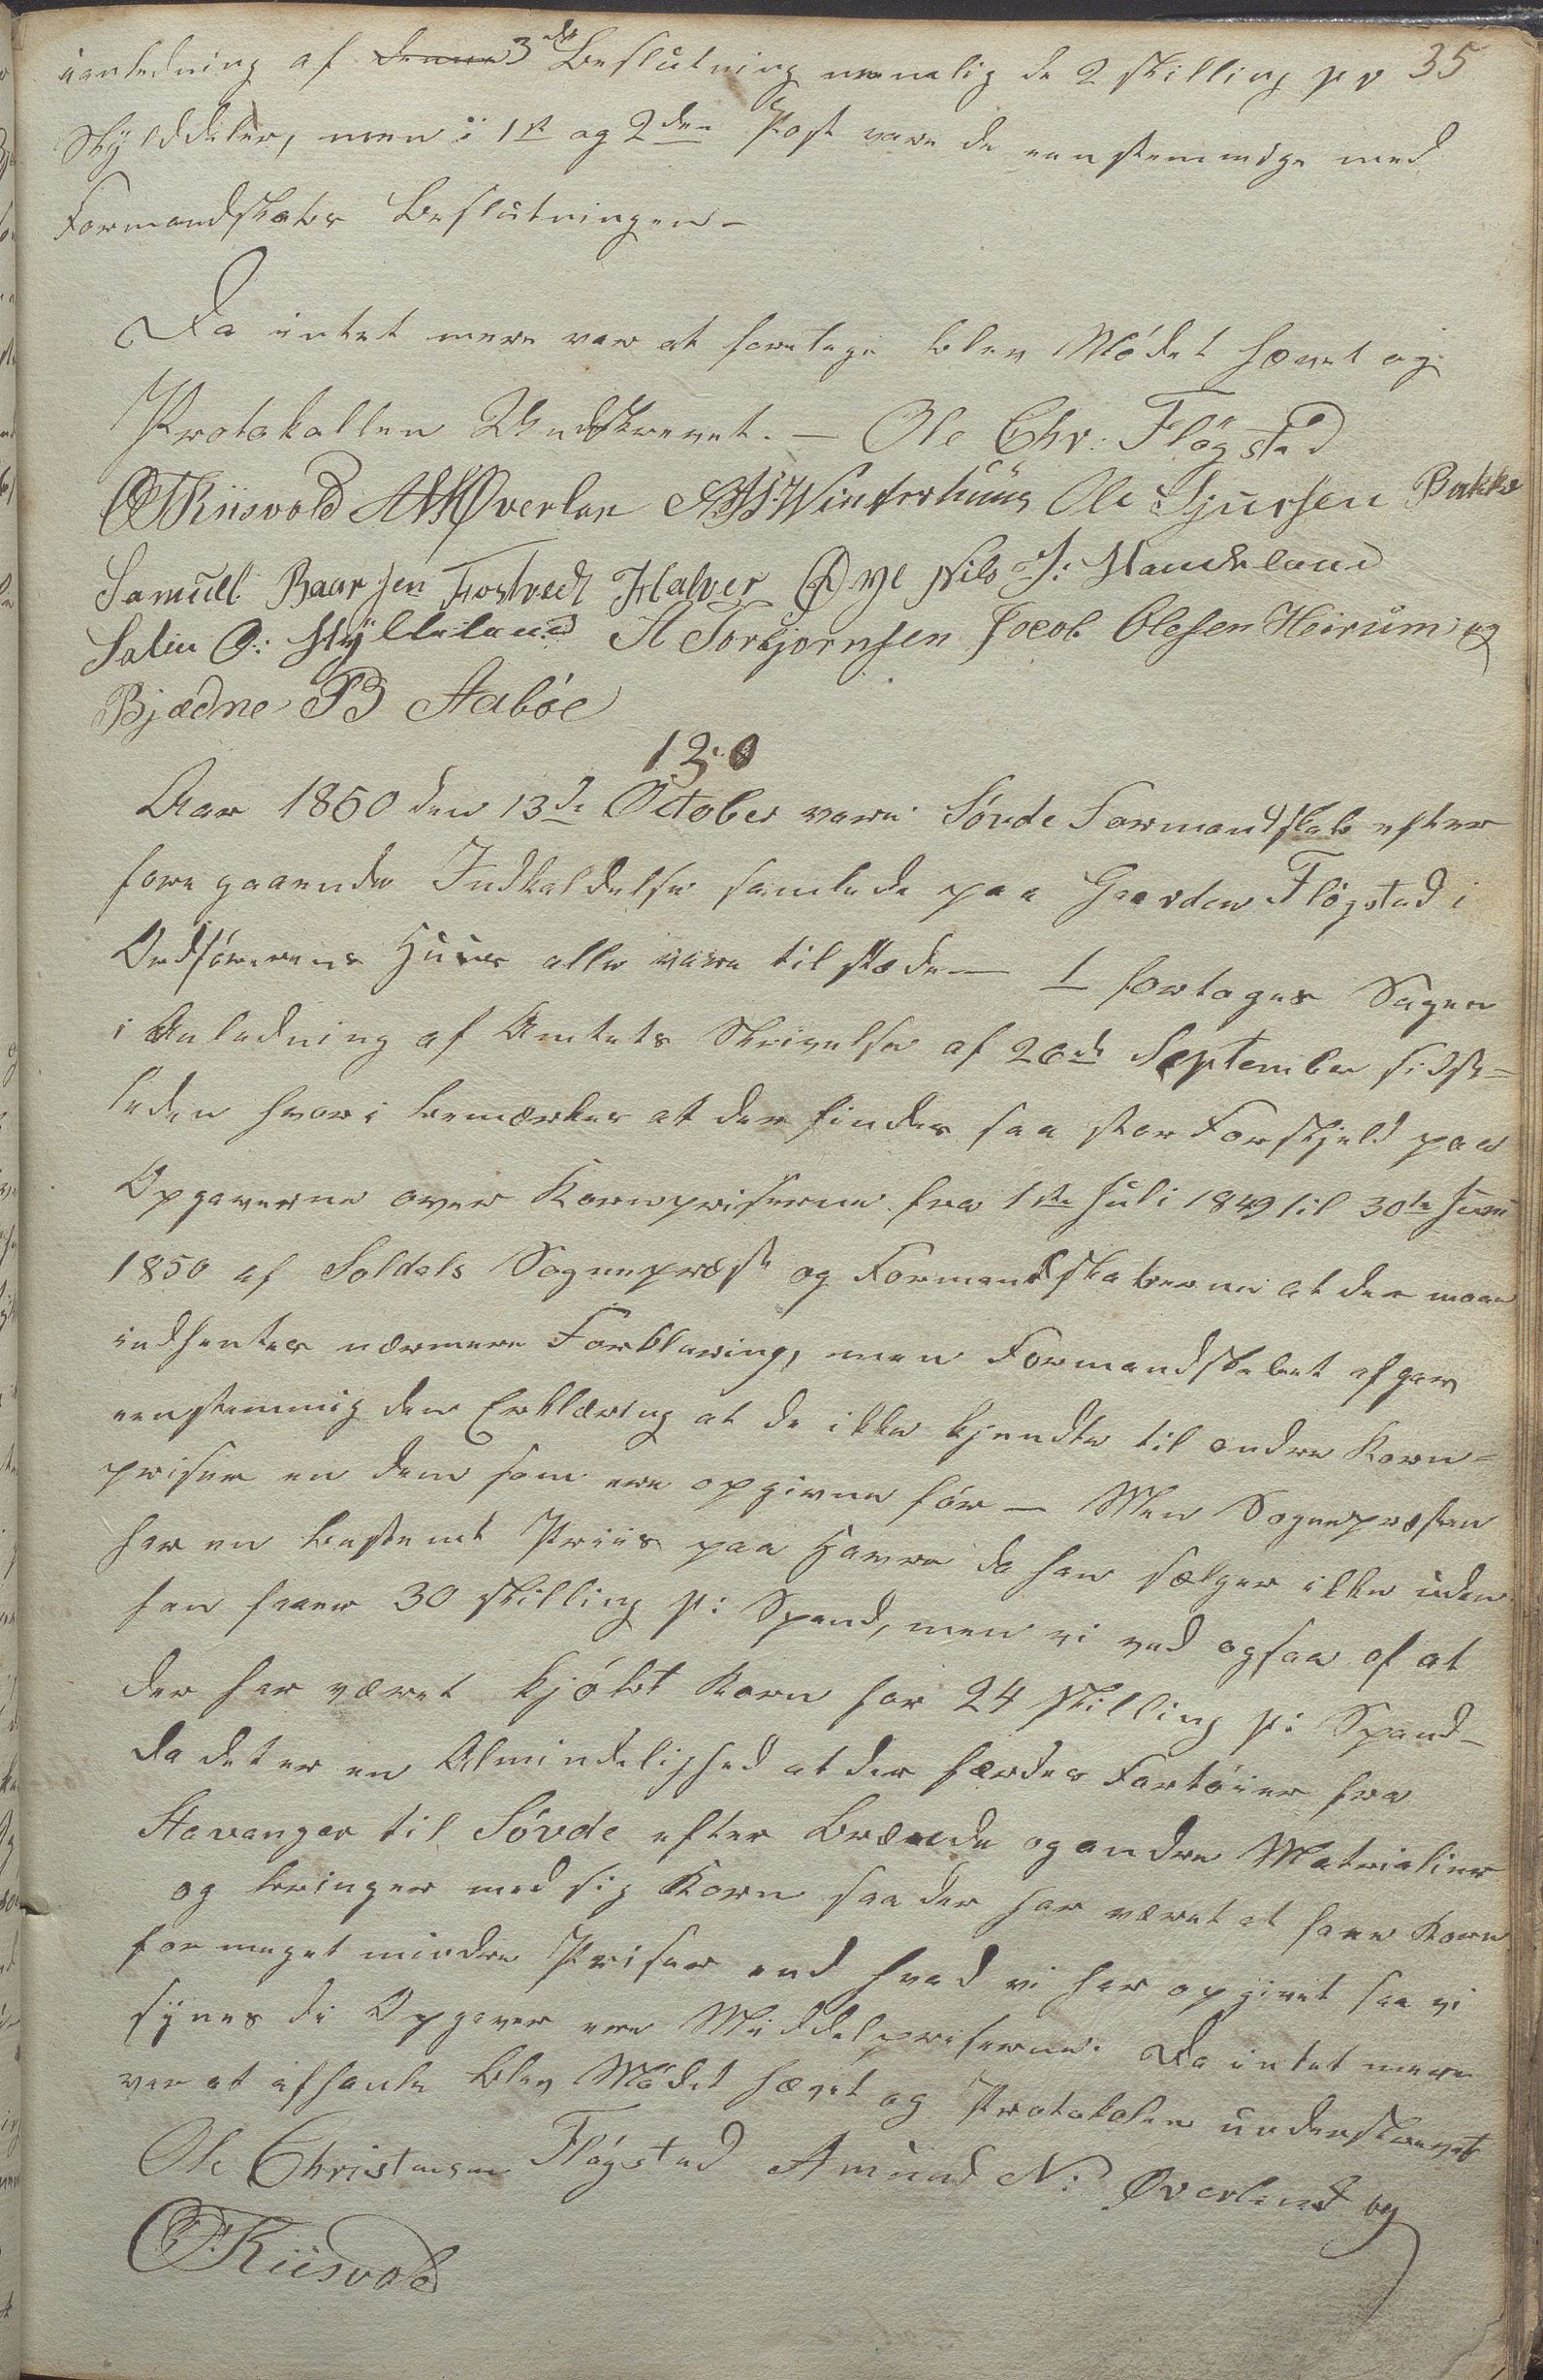 35
ianledning af denne 3de Beslutning nemlig de 2 skilling pr
Skylddaler, men i 1st og 2den Post vare de eenstemmige med
Formandskabs Beslutningen –
Da intet mere var at foretage blev Mödet hævet og
Protokollen Undskrevet. – Ole Chr. Flögstad
OTRiisvold ANØverlan Winterhuus Ole Sjursen Bakke
Samuel Baarsen Tostvedt Halver Øye Nils J: Handeland
Salve O: Hylleland A Torbjornsen Jocob Olesen Heirum og
Bjødne B Aaböe
13.
Aar 1850 den 13de October vare Sövde Formandskab efter
foregaaende Indkaldelse samlede paa Gaarden Flögstad i
Ordförerens Huus alle vare tilstæde – 1 fortoges Sagen
i Anledning af Amtets Skrivelse af 26de September sidst-
leden hvori bemærkes at der findes saa stor Forskjeld paa
Opgaverne over Kornpriserne fra 1ste Juli 1849 til 30te Juni
1850 af Soldals Sognepræst og Formandskaberne at der maae
indhentes nærmere Forklaring, men Formandskabet afgav
eenstemmig den Erklæring at de ikke kjendte til andre Korn-
priser en dem som ere opgivne för – Men Sognepræsten
har en bestemt Priis paa Havre da han sælger ikke uden
han faaer 30 skilling p: Spand, men vi ved ogsaa af at
der har været kjöbt Korn for 24 skilling p: Spand –
da det er en Almindelighed at der færdes Fartöier fra
Stavanger til Sövde efter Brænde og andre Materialier
og bringer med sig Korn saa der har været at faae Korn
for meget mindre Priser end hvad vi har opgivet saa vi
synes de Opgaver ere Middelpriserne. Da intet mere
var at afhandle blev Mödet hævet og Protokolen underskrevet
Ole Christensen Flögstad Amund N: Øverland og
OTRiisvold